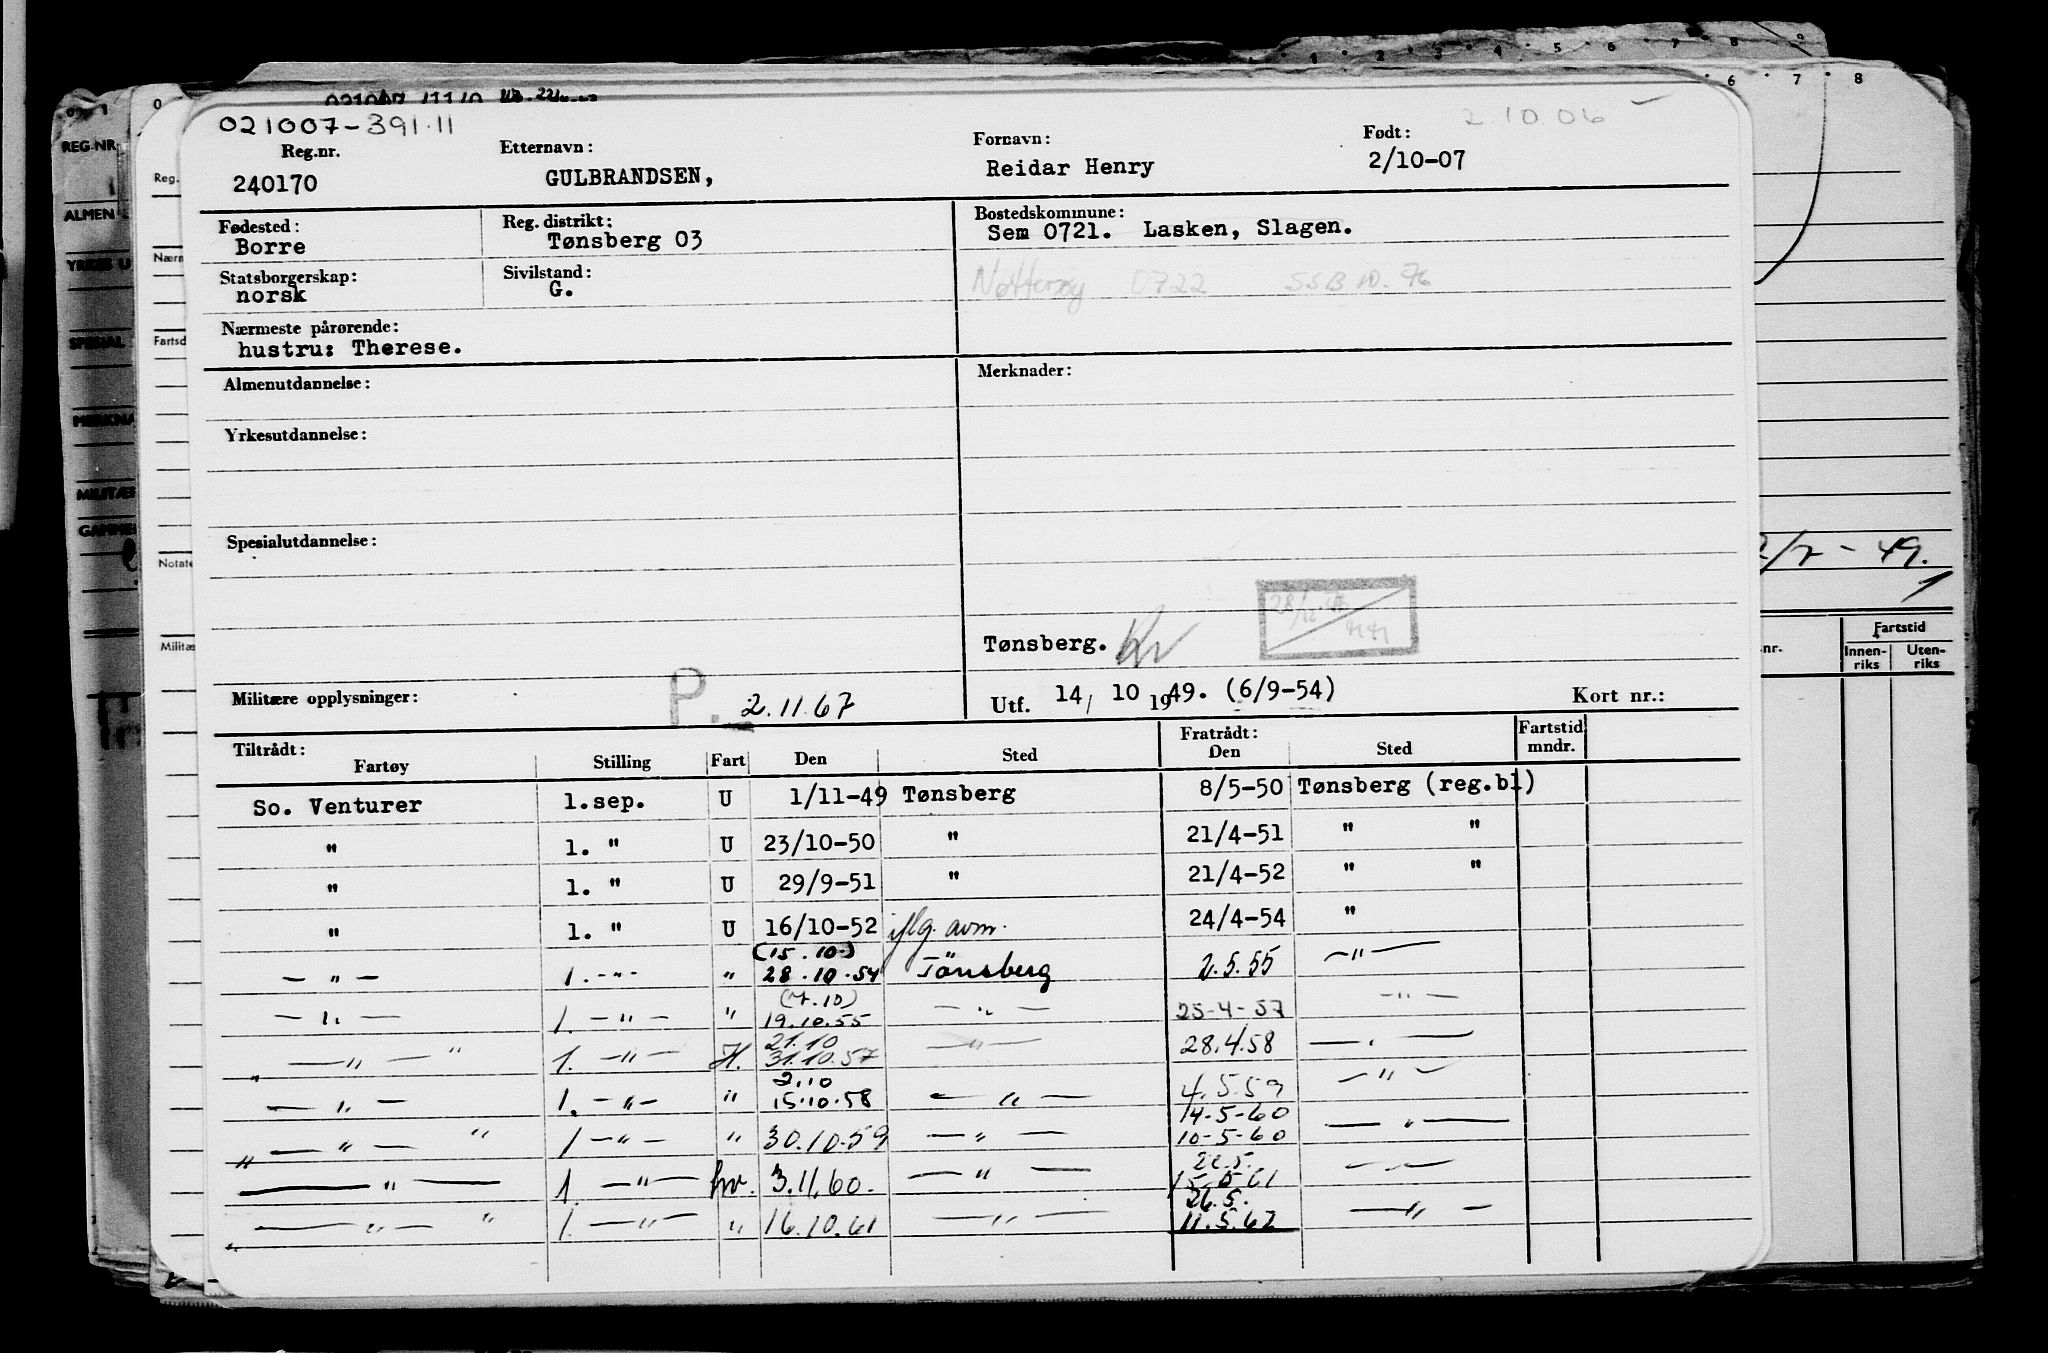 021007-391.11
2.10.06
Reg.nr. Etternavn: Fornavn: Født:
240170 GULBRANDSEN, Reidar Henry 2/10-07
Fødested: Reg. distrikt: Bostedskommune:
Borre Tønsberg 03 Sem 0721. Lasken, Slagen.
Statsborgerskap: Sivilstand:
norsk G. Nøtterøy 0722 SSB 10.76
Nærmeste pårørende:
hustru: Therese.
Almenutdannelse: Merknader:
Yrkesutdannelse:
Spesialutdannelse:
Tønsberg.
Militære opplysninger: P. 2.11.67 Utf. 14/ 10 1949. (6/9-54) Kort nr.:
Tiltrådt: Fratrådt: Fartstid
Fartøy Stilling Fart Den Sted Den Sted mndr.
So. Venturer 1.sep. U 1/11-49 Tønsberg 8/5-50 Tønsberg (reg.bl)
" 1. " U 23/10-50 " 21/4-51 " "
" 1. " U 29/9-51 " 21/4-52 " "
" 1. " U 16/10-52 iflg. avm. 24/4-54 "
(15.10)
— " — 1. -"- " 28.10.54 Tönsberg 2.5.55 —"—
— " — 1. —"— " 19.10.55 — " — 25-4-57 —"—
21.10
" — " — " 1. —"— H. 31.10.57 —"— 28.4.58 — " —
2.10
— " — 1. —"— " 15.10.58 — " — 4.5.59 —"—
14-5-60
" — " — " 1 —"— " 30.10.59 — " — 10-5-60 — " —
— " — 1. —"— hv. 3.11.60. — " — 15.5.61 —"—
26.5.
" — " — " 1. —"— " 16.10.61 — " — 11.5.62 — " —
REG.NR
ALMEN
SPESIAL
Reg.
Fartsd
Notate
2/7 - 49.
Fartstid
.nr. Innen-riks Uten-riks